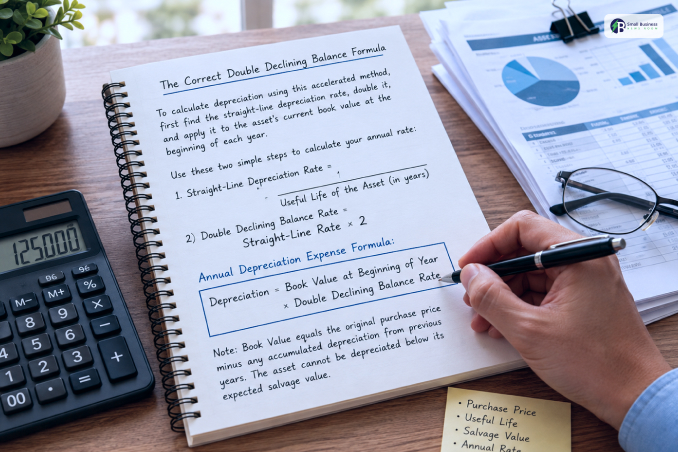 The Correct Double Declining Balance Formula
To calculate depreciation using this accelerated method,
first find the straight-line depreciation rate, double it,
and apply it to the asset's current book value at the
beginning of each year.
Use these two simple steps to calculate your annual rate:
1. Straight-Line Depreciation Rate =
Useful Life of the Asset (in years)
2) Double Declining Balance Rate =
Straight-Line Rate × 2
Annual Depreciation Expense Formula:
Depreciation = Book Value at Beginning of Year
× Double Declining Balance Rate
Note: Book Value equals the original purchase price
minus any accumulated depreciation from previous
years. The asset cannot be depreciated below its
expected salvage value.
125000
96
96
M-
M+
%
8
9
−
4
5
6
3
+
1
2
=
00
•
• Purchase Price
• Useful Life
• Salvage Value
• Annual Rate
Small Business